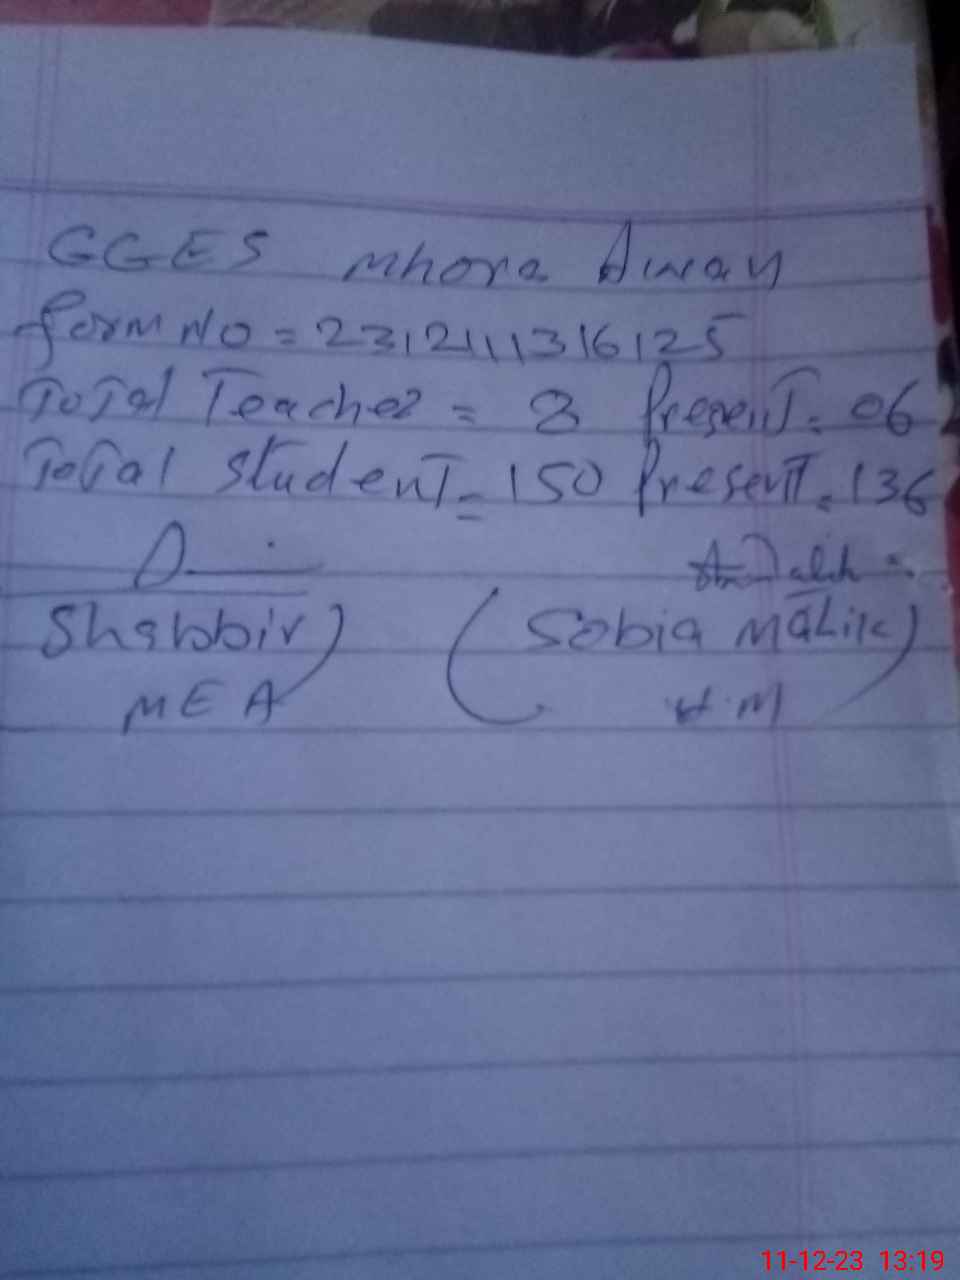 GGES Mhora Awan
form NO = 2312111316125
Total Teacher = 8 Present = 06
Total Student = 150 Present = 136
Shabbir) (Sobia Malik)
MEA H.M
11-12-23 13:19